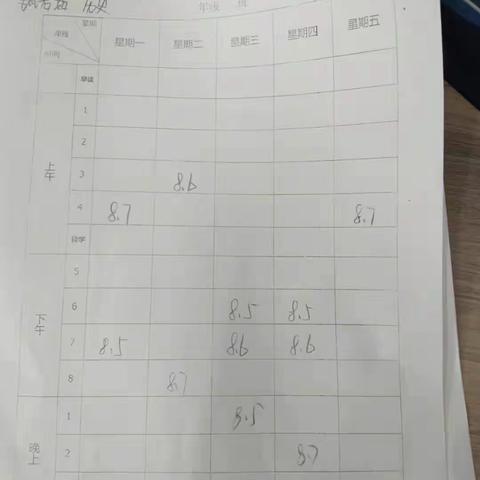 历史 年级 班
星期 星期一 星期二 星期三 星期四 星期五
早读
上午
1
2
3 8.6
4 8.7 8.7
自学
下午
5
6 8.5 8.5
7 8.5 8.6 8.6
8 8.7
晚上
1 8.5
2 8.7